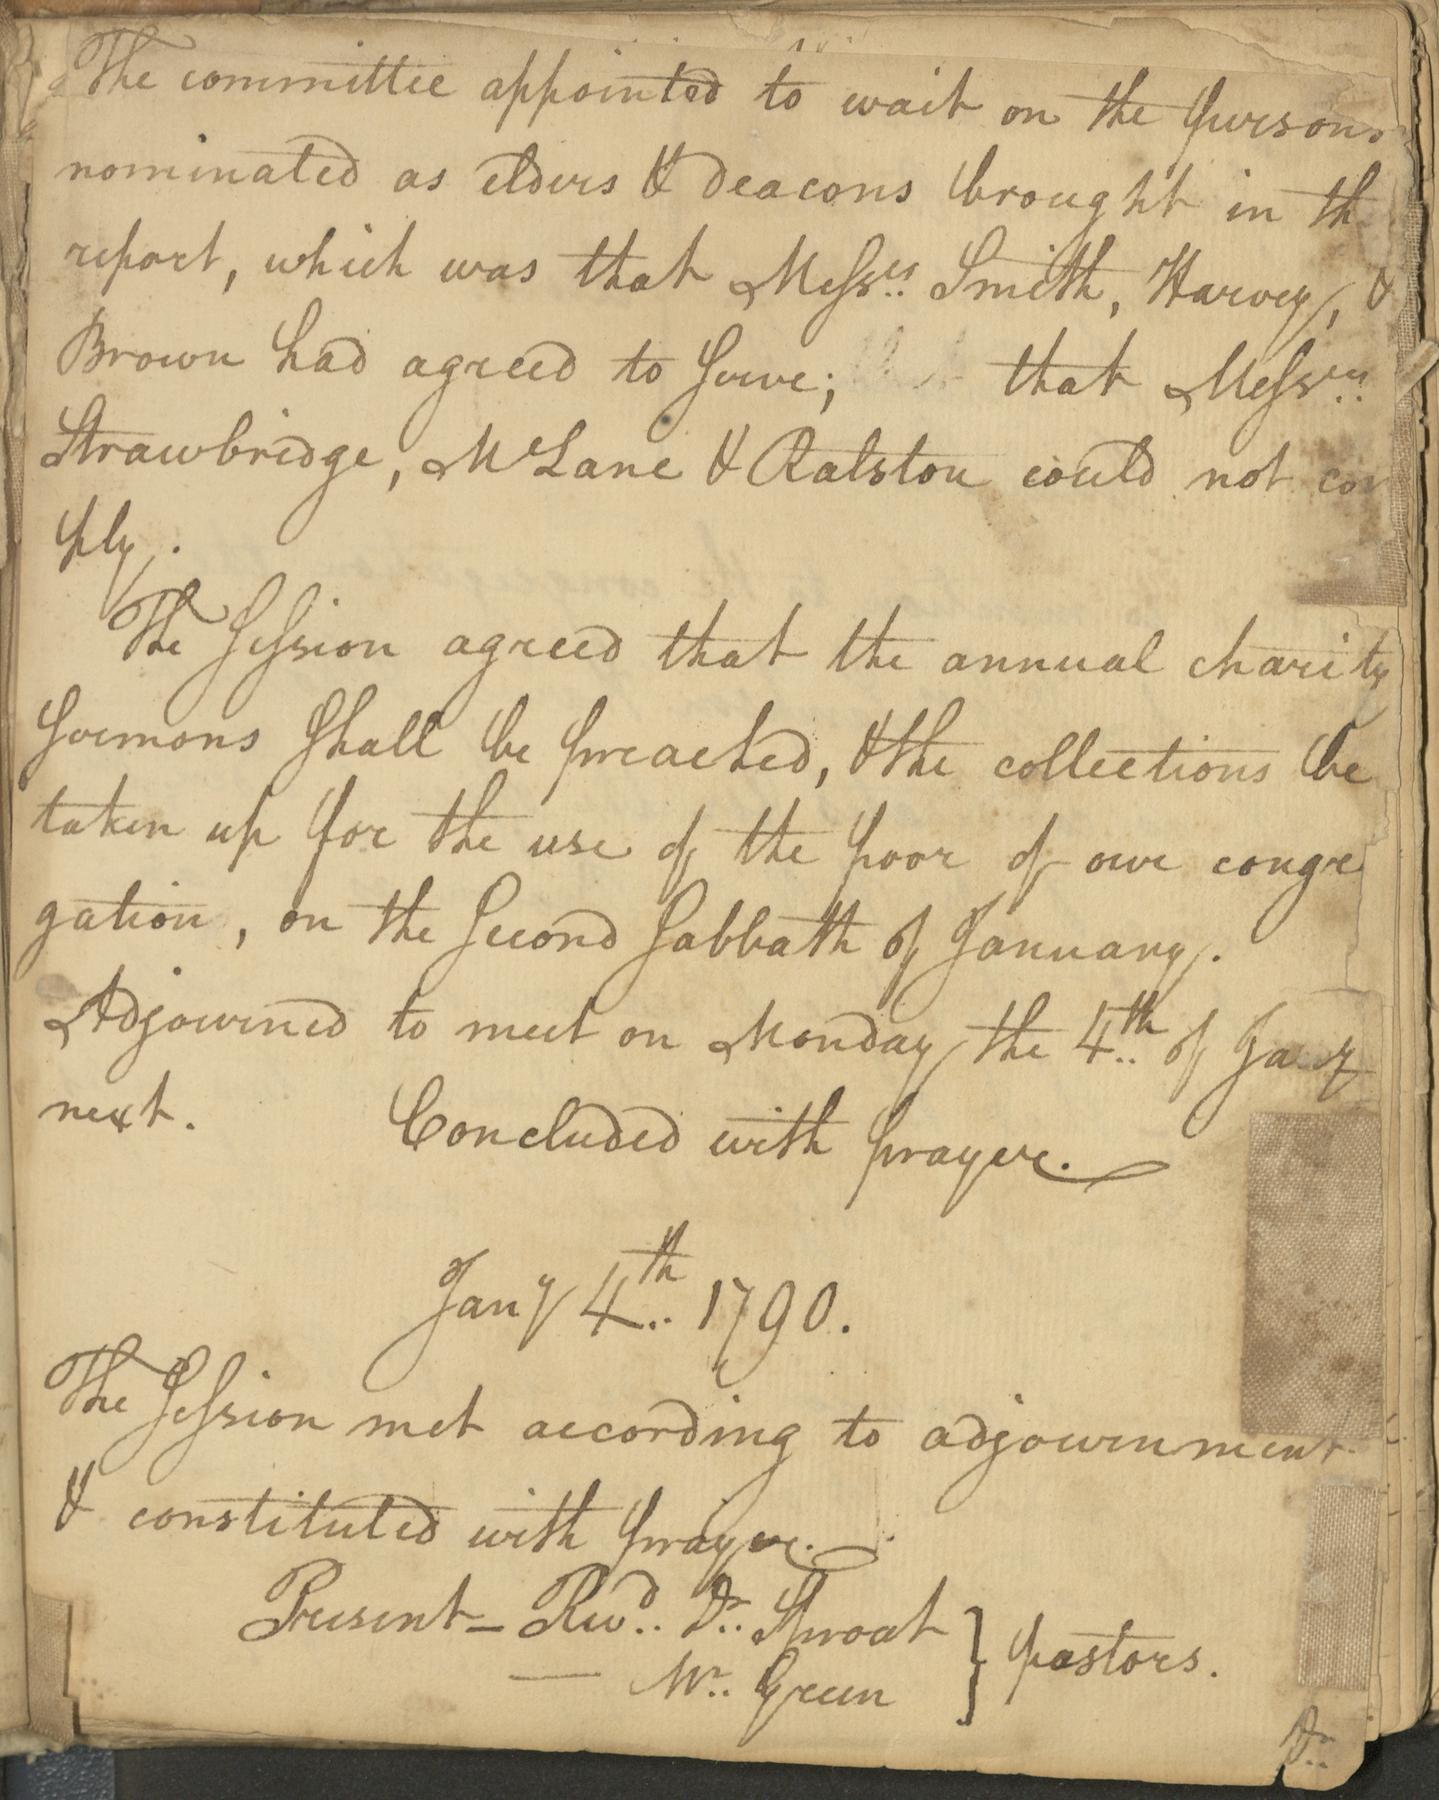 The committee appointed to wait on the persons
nominated as elders & deacons brought in th
report, which was that Mess.rs Smith, Harvey, &
Brown had agreed to serve; that Mess.rs
Strawbridge, McLane & Ralston could not com
ply.
The Session agreed that the annual charity
sermons shall be preached, & the collections be
taken up for the use of the poor of our congre
gation, on the second sabbath of January.
Adjourned to meet on Monday the 4th of Jany
next. Concluded with prayer.
Jany 4th 1790.
The Session met according to adjournment
& constituted with prayer.
Present – Revd. Dr. Sproat } pastors.
— Mr. Green
Dr.